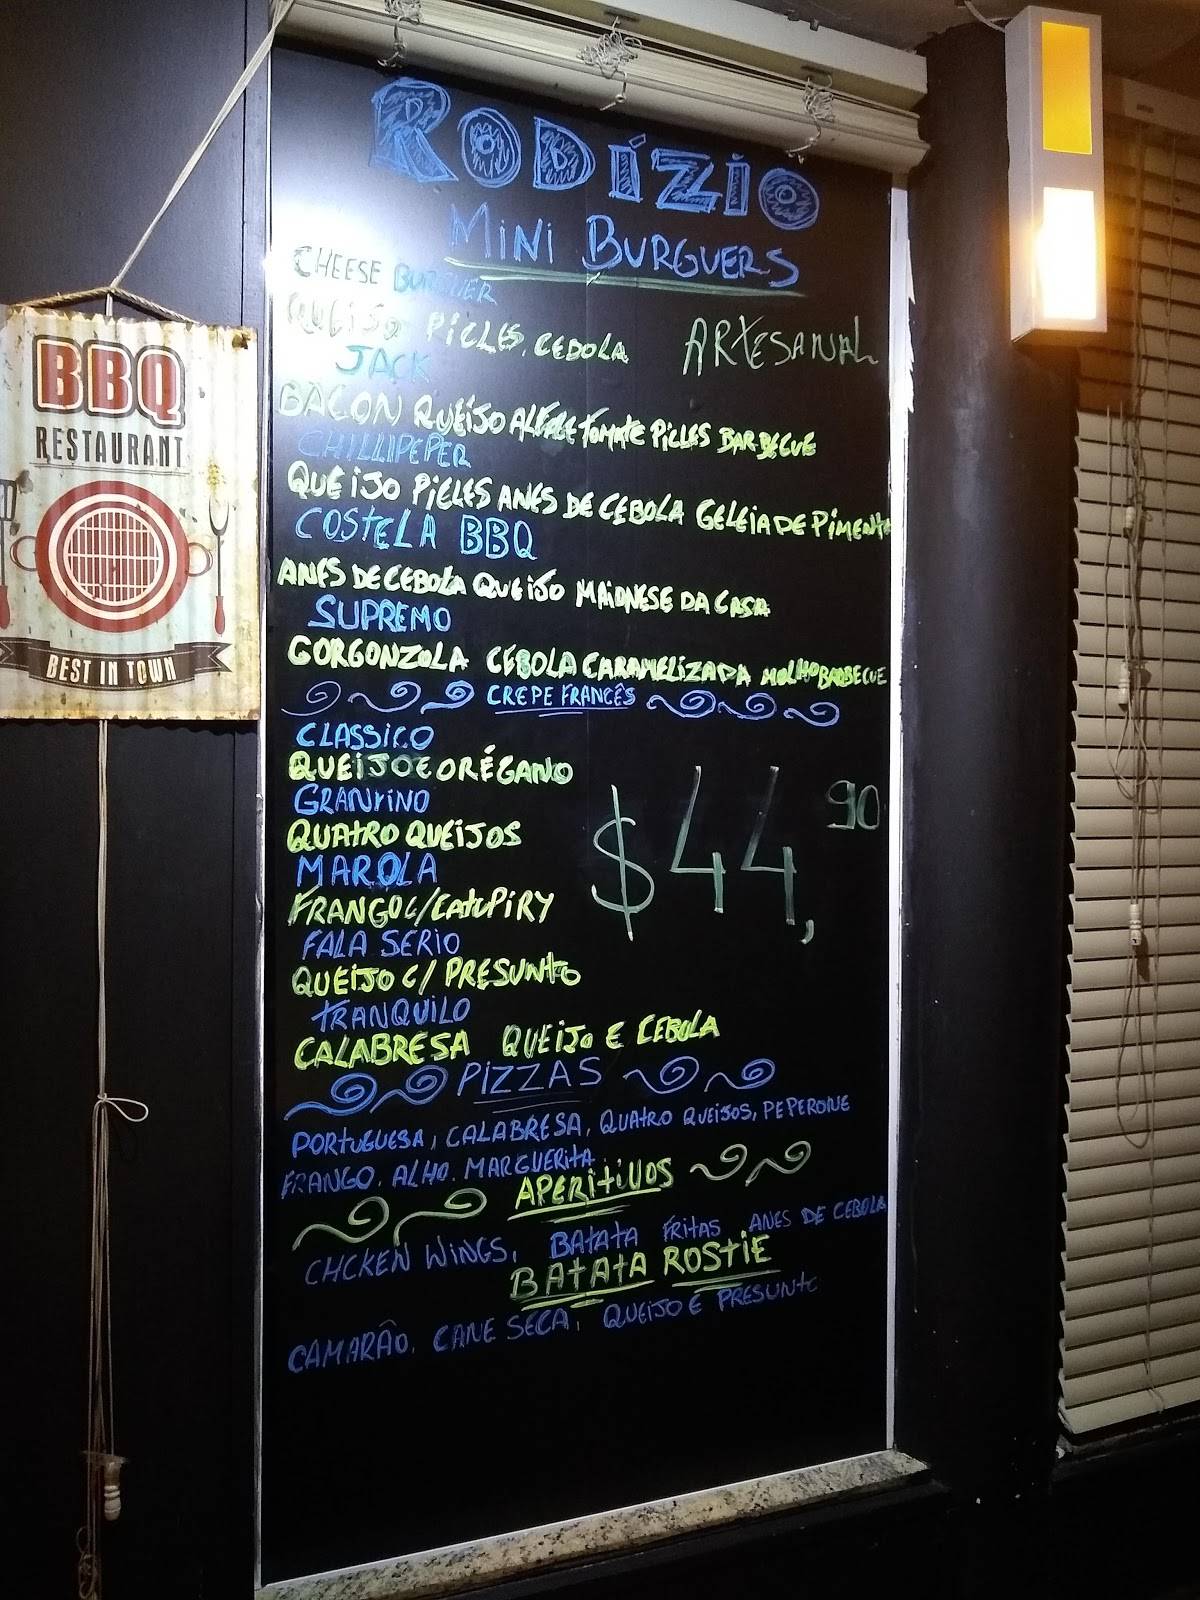 RODÍZIO
MINI BURGUERS
CHEESE BURGUER
QUEIJO PICLES, CEBOLA
ARTESANAL
JACK
BACON QUEIJO ALFACE TOMATE PICLES BARBECUE
CHILLIPEPER
QUEIJO PICLES ANES DE CEBOLA GELEIA DE PIMENTA
COSTELA BBQ
ANES DE CEBOLA QUEIJO MAIONESE DA CASA
SUPREMO
GORGONZOLA CEBOLA CARAMELIZADA MOLHO BARBECUE
CREPE FRANCÊS
CLASSICO
QUEIJO E ORÉGANO
QUATRO QUEIJOS
MAROLA
FRANGO C/CATUPIRY
FALA SERIO
QUEIJO C/ PRESUNTO
TRANQUILO
CALABRESA QUEIJO E CEBOLA
$44,90
PIZZAS
PORTUGUESA, CALABRESA, QUATRO QUEIJOS, PEPERONE
FRANGO. ALHO. MARGUERITA
APERITIVOS
CHCKEN WINGS, BATATA FRITAS ANES DE CEBOLA
BATATA ROSTIE
CAMARÃO. CANE SECA, QUEIJO E PRESUNTO
BBQ
RESTAURANT
BEST IN TOWN